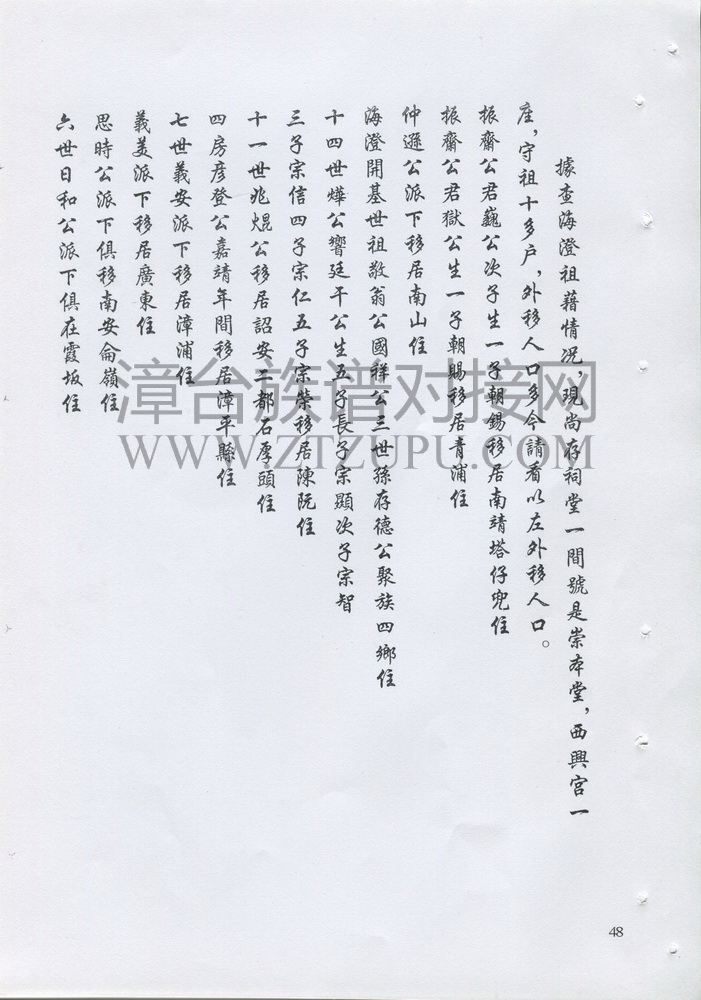 據查海澄祖藉情况，現尚存祠堂一間號是崇本堂，西興宮一
座，守祖十多户，外移人口多今請看以左外移人口。
振齋公君巍公次子生一子朝錫移居南靖塔仔兜住
振齋公君獄公生一子朝賜移居青浦住
仲遜公派下移居南山住
海澄開基世祖敬翁公國祥公三世孫存德公聚族四鄉住
十四世燁公響廷干公生五子長子宗顯次子宗智
三子宗信四子宗仁五子宗榮移居陳阮住
十一世兆焜公移居詔安二都石厚頭住
四房彥登公嘉靖年間移居漳平縣住
七世義安派下移居漳浦住
義美派下移居廣東住
思時公派下俱移南安侖嶺住
六世日和公派下俱在霞坂住
漳台族谱对接网
WWW.ZTZUPU.COM
48